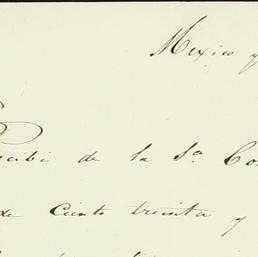 Mexico y
Recibi de la Sª Co
de Ciento treinta y